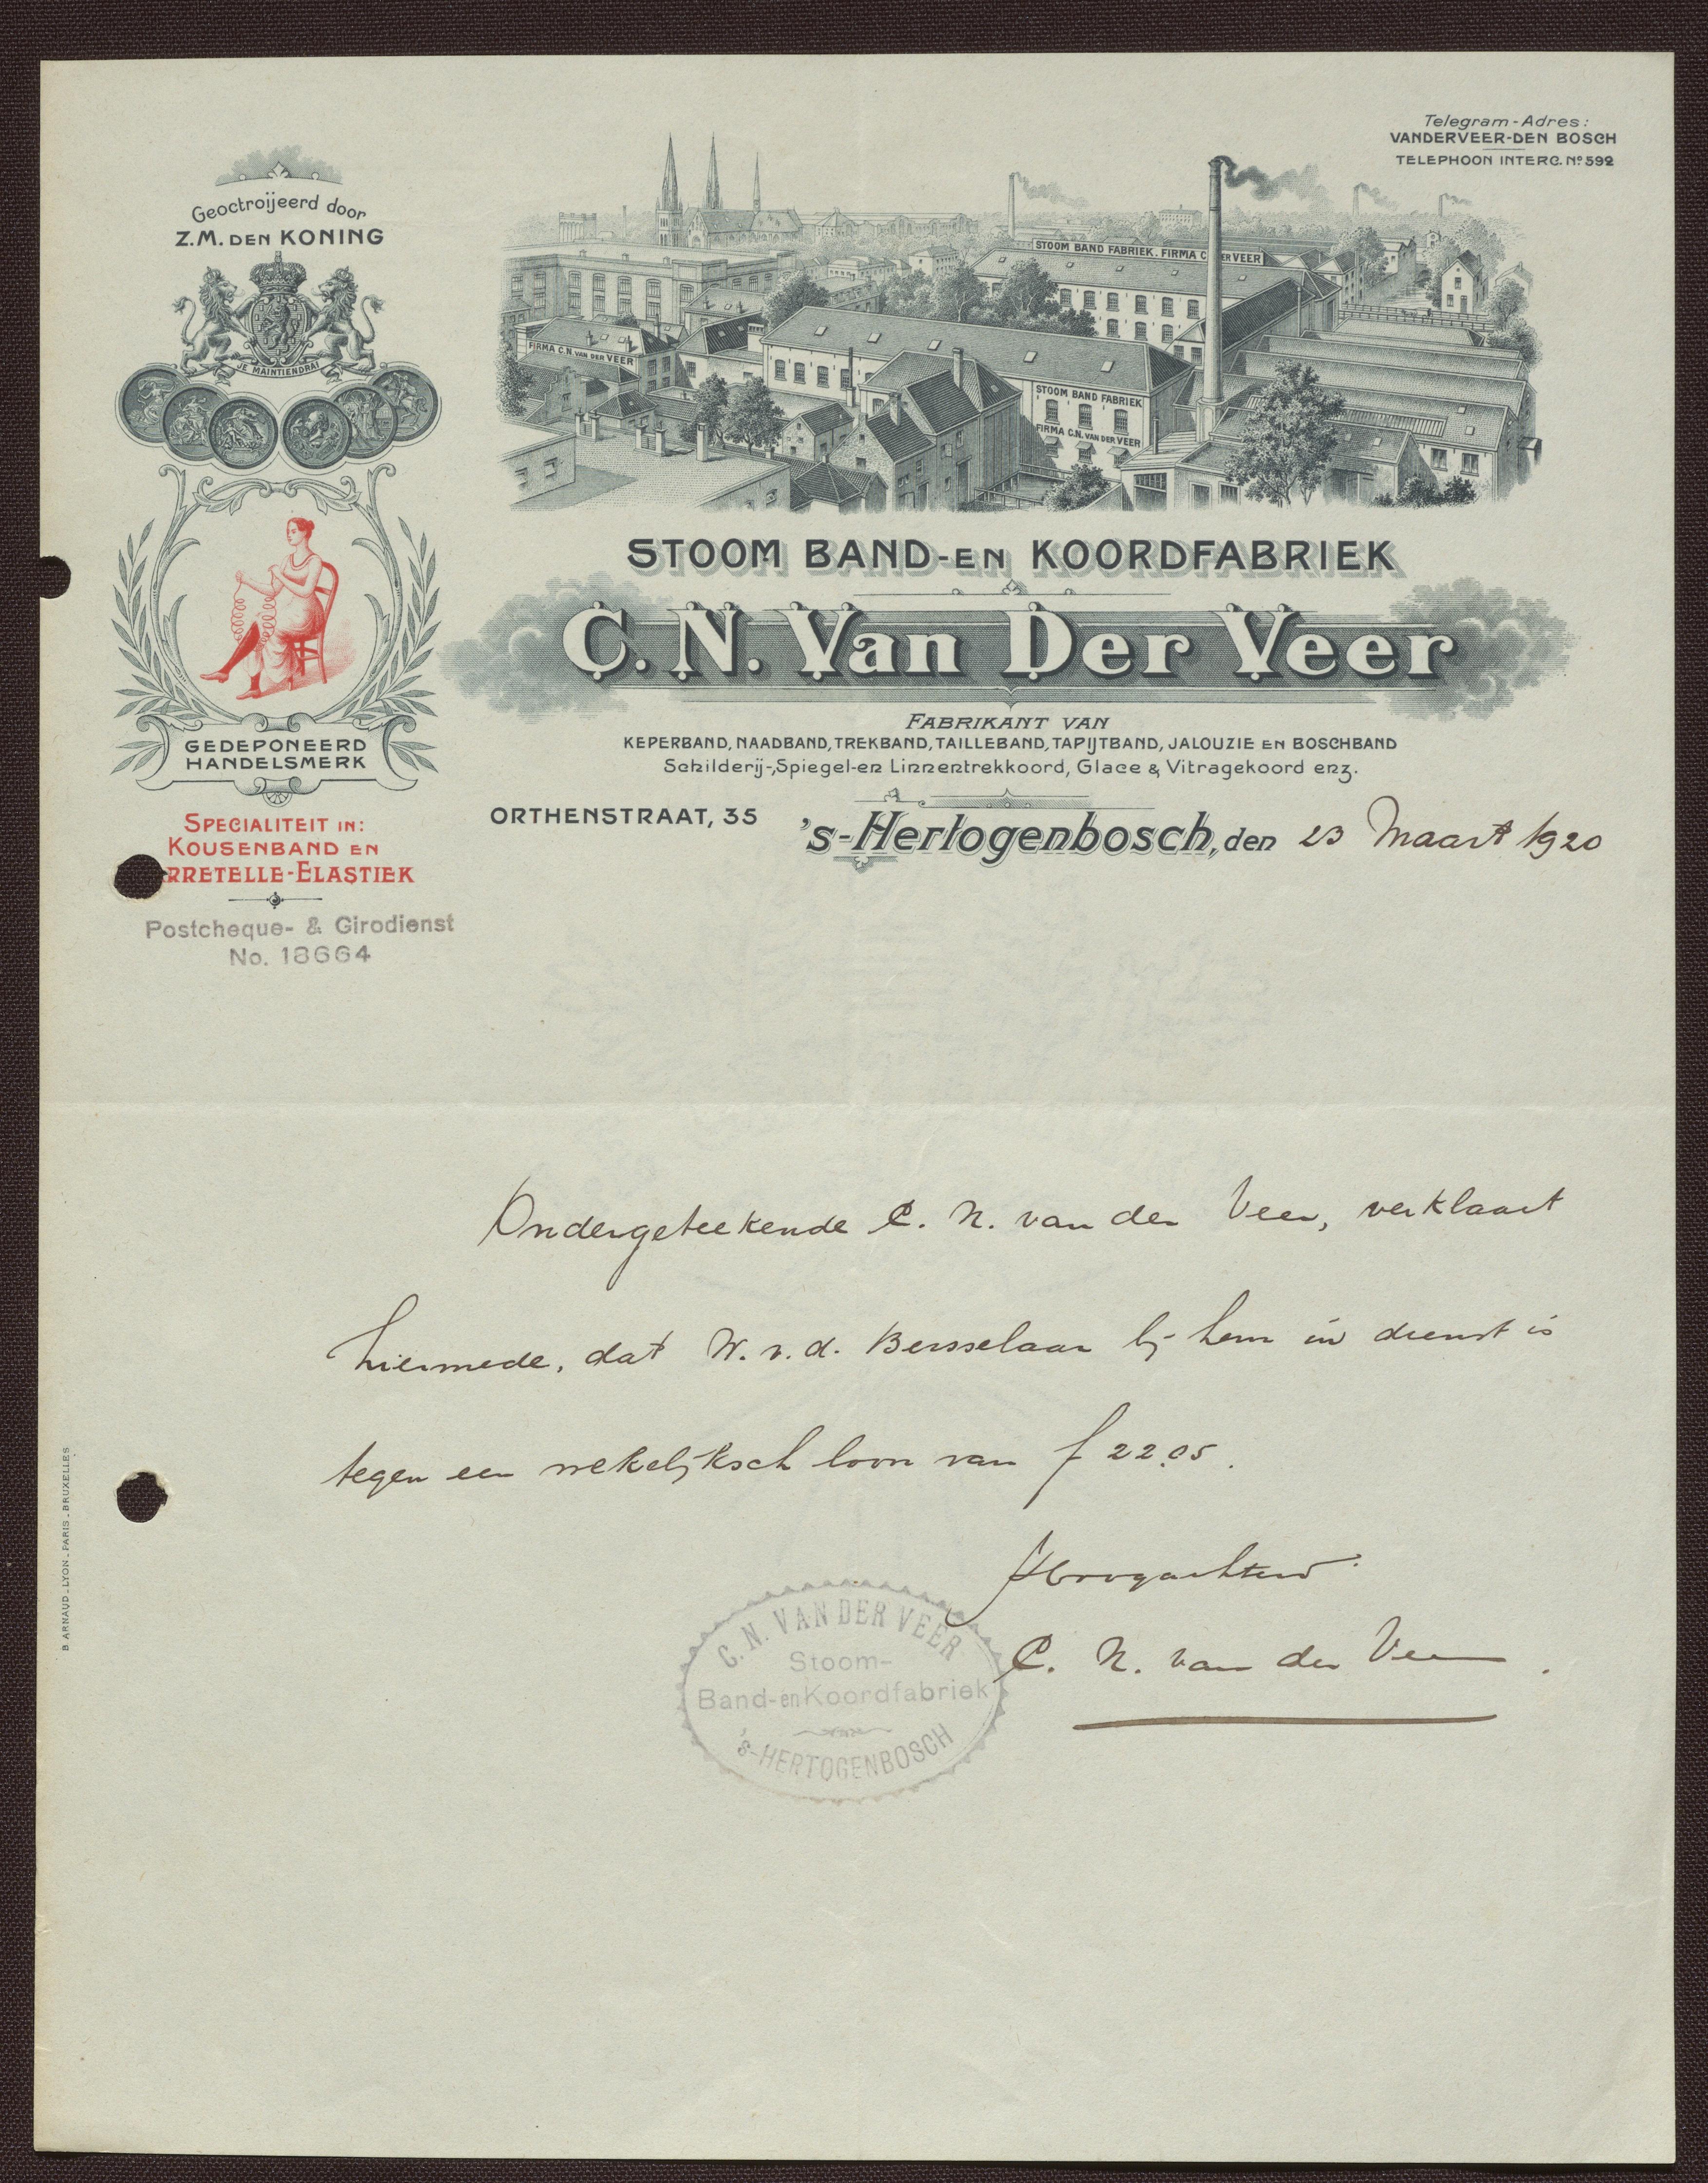 Telegram-Adres:
VANDERVEER-DEN BOSCH
TELEPHOON INTERC. No 592
Geoctroijeerd door
Z.M. DEN KONING
JE MAINTIENDRAI
GEDEPONEERD
HANDELSMERK
SPECIALITEIT IN:
KOUSENBAND EN
RRETELLE-ELASTIEK
Postcheque- & Girodienst
No. 18664
STOOM BAND FABRIEK. FIRMA C ER VEER
FIRMA C.N. VAN DER VEER
STOOM BAND FABRIEK
FIRMA C.N. VAN DER VEER
STOOM BAND-EN KOORDFABRIEK
C.N. Van Der Veer
FABRIKANT VAN
KEPERBAND, NAADBAND, TREKBAND, TAILLEBAND, TAPIJTBAND, JALOUZIE EN BOSCHBAND
Schilderij-, Spiegel-en Linnentrekkoord, Glace & Vitragekoord enz.
ORTHENSTRAAT, 35
's-Hertogenbosch, den 23 Maart 1920
Ondergeteekende C. N. van der Veer, verklaart
hiermede, dat W. v. d. Bersselaar bij hem in dienst is
tegen een wekelijksch loon van f 22.05.
Hoogachtend
C. N. van der Veer.
C. N. VAN DER VEER
Stoom-
Band-en Koordfabriek
's-HERTOGENBOSCH
B. ARNAUD_LYON_PARIS_BRUXELLES